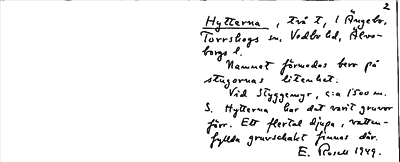 2
Hytterna, två t, i Ängebo,
Torrskogs sn, Vedbo hd, Älvs-
borgs l.
Namnet förmodas bero på
stugornas litenhet.
Vid Styggemyr, c:a 1500 m.
S. Hytterna har det varit gruvor
förr. Ett flertal djupa, vatten-
fyllda gruvschakt finnas där.
E. Rosell 1949.